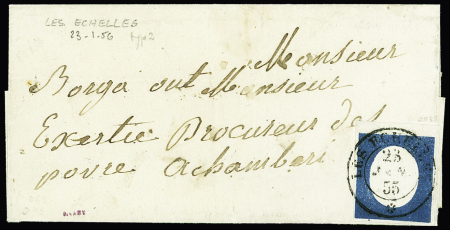 LES ECHELLES
23-1-56 type2
Monsieur
Borga out Monsieur
Exertie Procureur des
povre a chamberi
LES ECHELLES
23
55